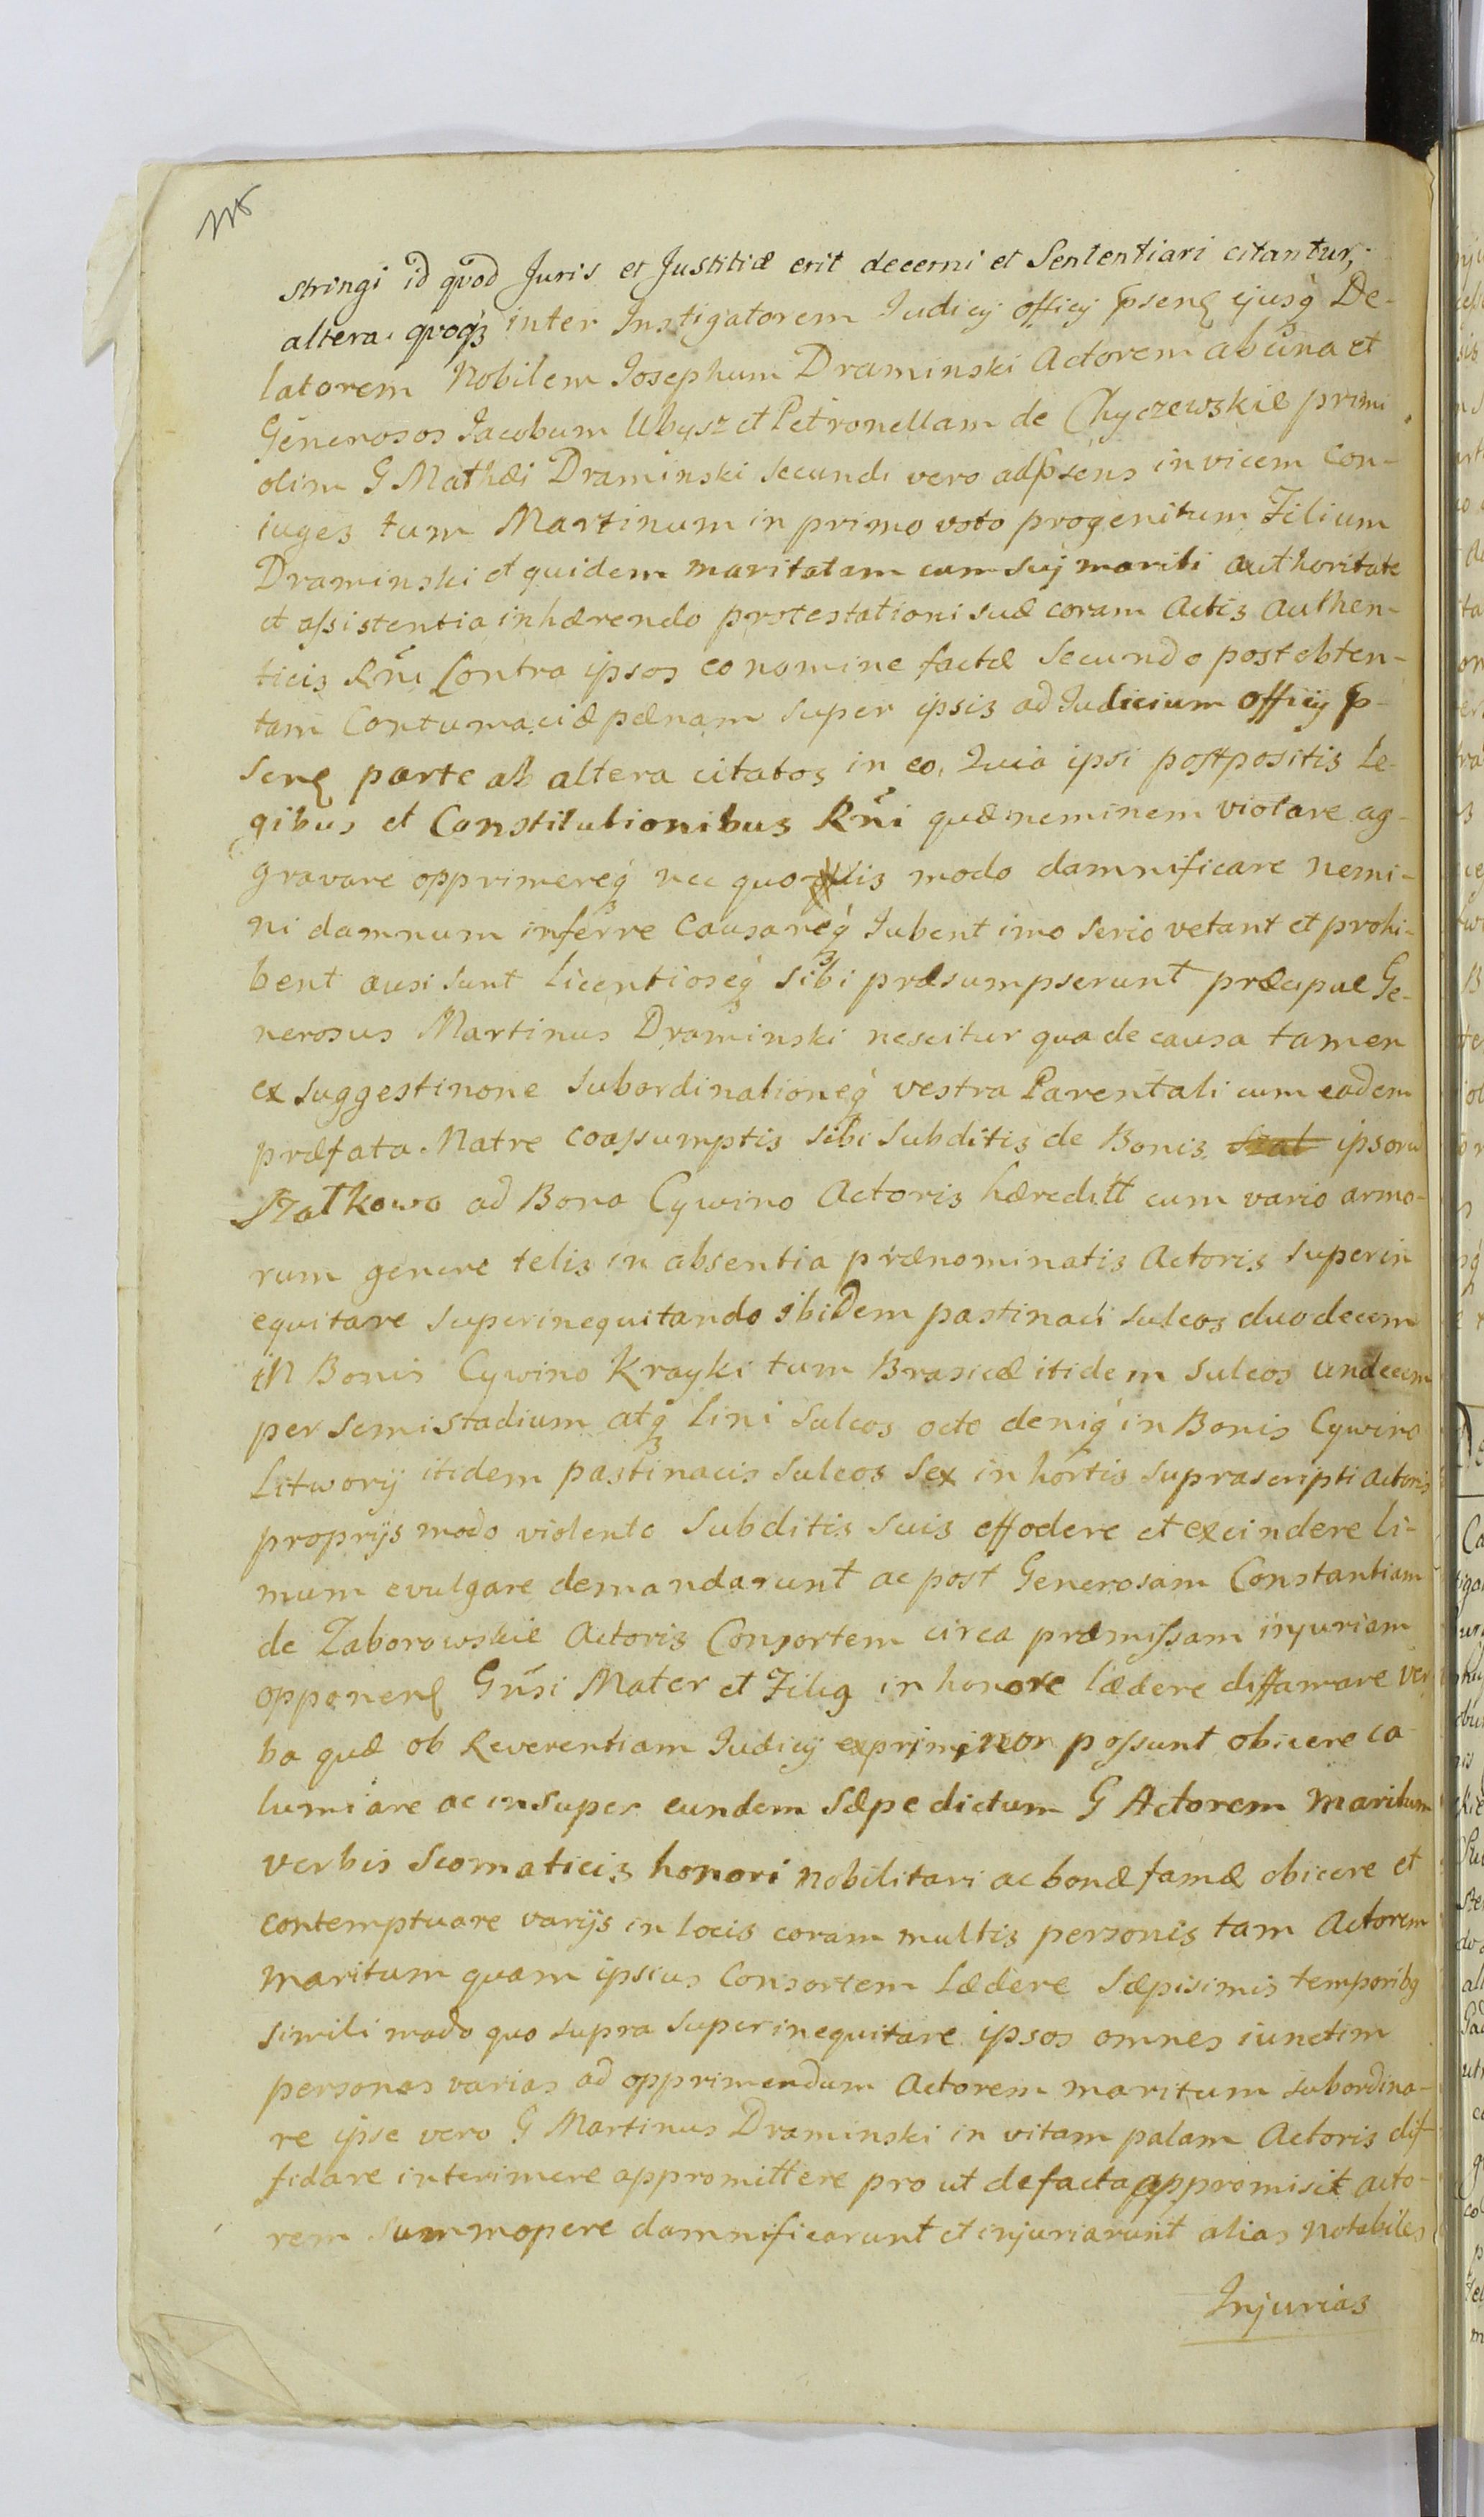 stringi id qvod Juris et Justitiæ erit decerni et Sententiari citantur,
altera qvoqꝫ inter Instigatorem Judicÿ officÿ pseng ejusqꝫ De-
latorem Nobilem Josephum Draminski Actorem ab una et
Generosos Jacobum Ubysz et Petronellam de Chyczewskie primi
olim G Mathæi Draminski secundi vero ad psens invicem Con-
iuges tum Martinum in primo voto progenitum Filium
Draminski et quidem maritatam cum suÿ mariti authoritate
et assistentia inhærendo protestationi suæ coram Actis Authen-
ticis Rni Contra ipsos eo nomine factæ Secundo post obten-
tam Contumaciæ pænam super ipsis ad Judicium officÿ p-
seng parte ab altera citatos in eo, Quia ipsi postpositis Le-
gibus et Constitutionibus Rni quæ neminem violare ag-
gravare opprimereqꝫ nec quovis modo damnificare nemi-
ni damnum inferre Causareqꝫ Jubent imo serio vetant et prohi-
bent ausi sunt Licentioseqꝫ sibi præsumpserunt præcipue Ge-
nerosus Martinus Draminski nescitur qua de causa tamen
ex suggestinone subordinationeqꝫ vestra Parentali cum eadem
præfata Matre coassumptis sibi Subditis de Bonis Szal ipsoru
Szalkowo ad Bona Cywino Actoris hæreditt cum vario armo-
rum genere telis in absentia prænominatis Actoris superin
equitare superinequitando ibidem pastinaci sulcos duodecem
in Bonis Cywino Krayki tum Brasicæ itidem sulcos undecem
per semistadium atqꝫ Lini Sulcos octo deniqꝫ in Bonis Cywino
Litworÿ itidem pastinacis sulcos sex in hortis suprascripti actoris
proprÿs modo violento Subditis suis effodere et excindere li-
mum evulgare demandarunt ac post Generosam Constantiam
de Zaborowskie Actoris Consortem circa præmissam injuriam
opponeng Gnsi Mater et Filig in honore lædere diffamare ver
ba quæ ob Reverentiam Judicÿ exprimi non possunt obicere ca
lumiare ac insuper eundem Sæpe dictum G Actorem Maritum
verbis Scomaticis honori Nobilitari ac bonæ famæ obicere et
contemptuare varÿs in locis coram multis personis tam Actorem
Maritum quam ipsius Consortem Lædere Sæpisimis temporibg
simili modo quo supra superinequitare ipsos omnes iunctim
personas varias ad opprimendum Actorem maritum subordina-
re ipse vero G Martinus Draminski in vitam palam Actoris dif-
fidare interimere appromittere pro ut de facta appromisit acto-
rem summopere damnificarunt et injuriarunt alias Notabiles
Injurias